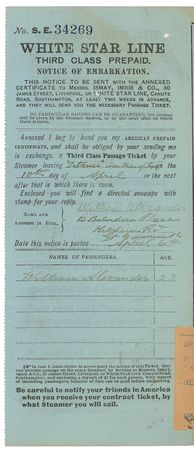 No. S. E. 34269
WHITE STAR LINE
THIRD CLASS PREPAID.
NOTICE OF EMBARKATION.
THIS NOTICE TO BE SENT WITH THE ANNEXED
CERTIFICATE TO MESSRS. ISMAY, IMRIE & CO., 30
JAMES STREET, LIVERPOOL, OR WHITE STAR, CANUTE
ROAD, SOUTHAMPTON, AT LEAST TWO WEEKS IN ADVANCE,
AND THEY WILL SEND YOU THE NECESSARY PASSAGE TICKET.
NO PARTICULAR SAILING CAN BE GUARANTEED; but passage
will be given by the Steamer desired, or the next after on which
there is room.
Annexed I beg to hand you my AMERICAN PREPAID
CERTIFICATE, and shall be obliged by your sending
me in exchange, a Third Class Passage Ticket by your
Steamer leaving on the
10th day of April or the next
after that in which there is room.
Enclosed you will find a directed envelope
with stamp for your reply.
NAME AND
ADDRESS IN FULL.
William Alexander
Date this notice is posted
NAMES OF PASSENGERS. AGE.
William Alexander 23
Be careful to notify your friends in America
when you receive your contract ticket, by
what Steamer you will sail.